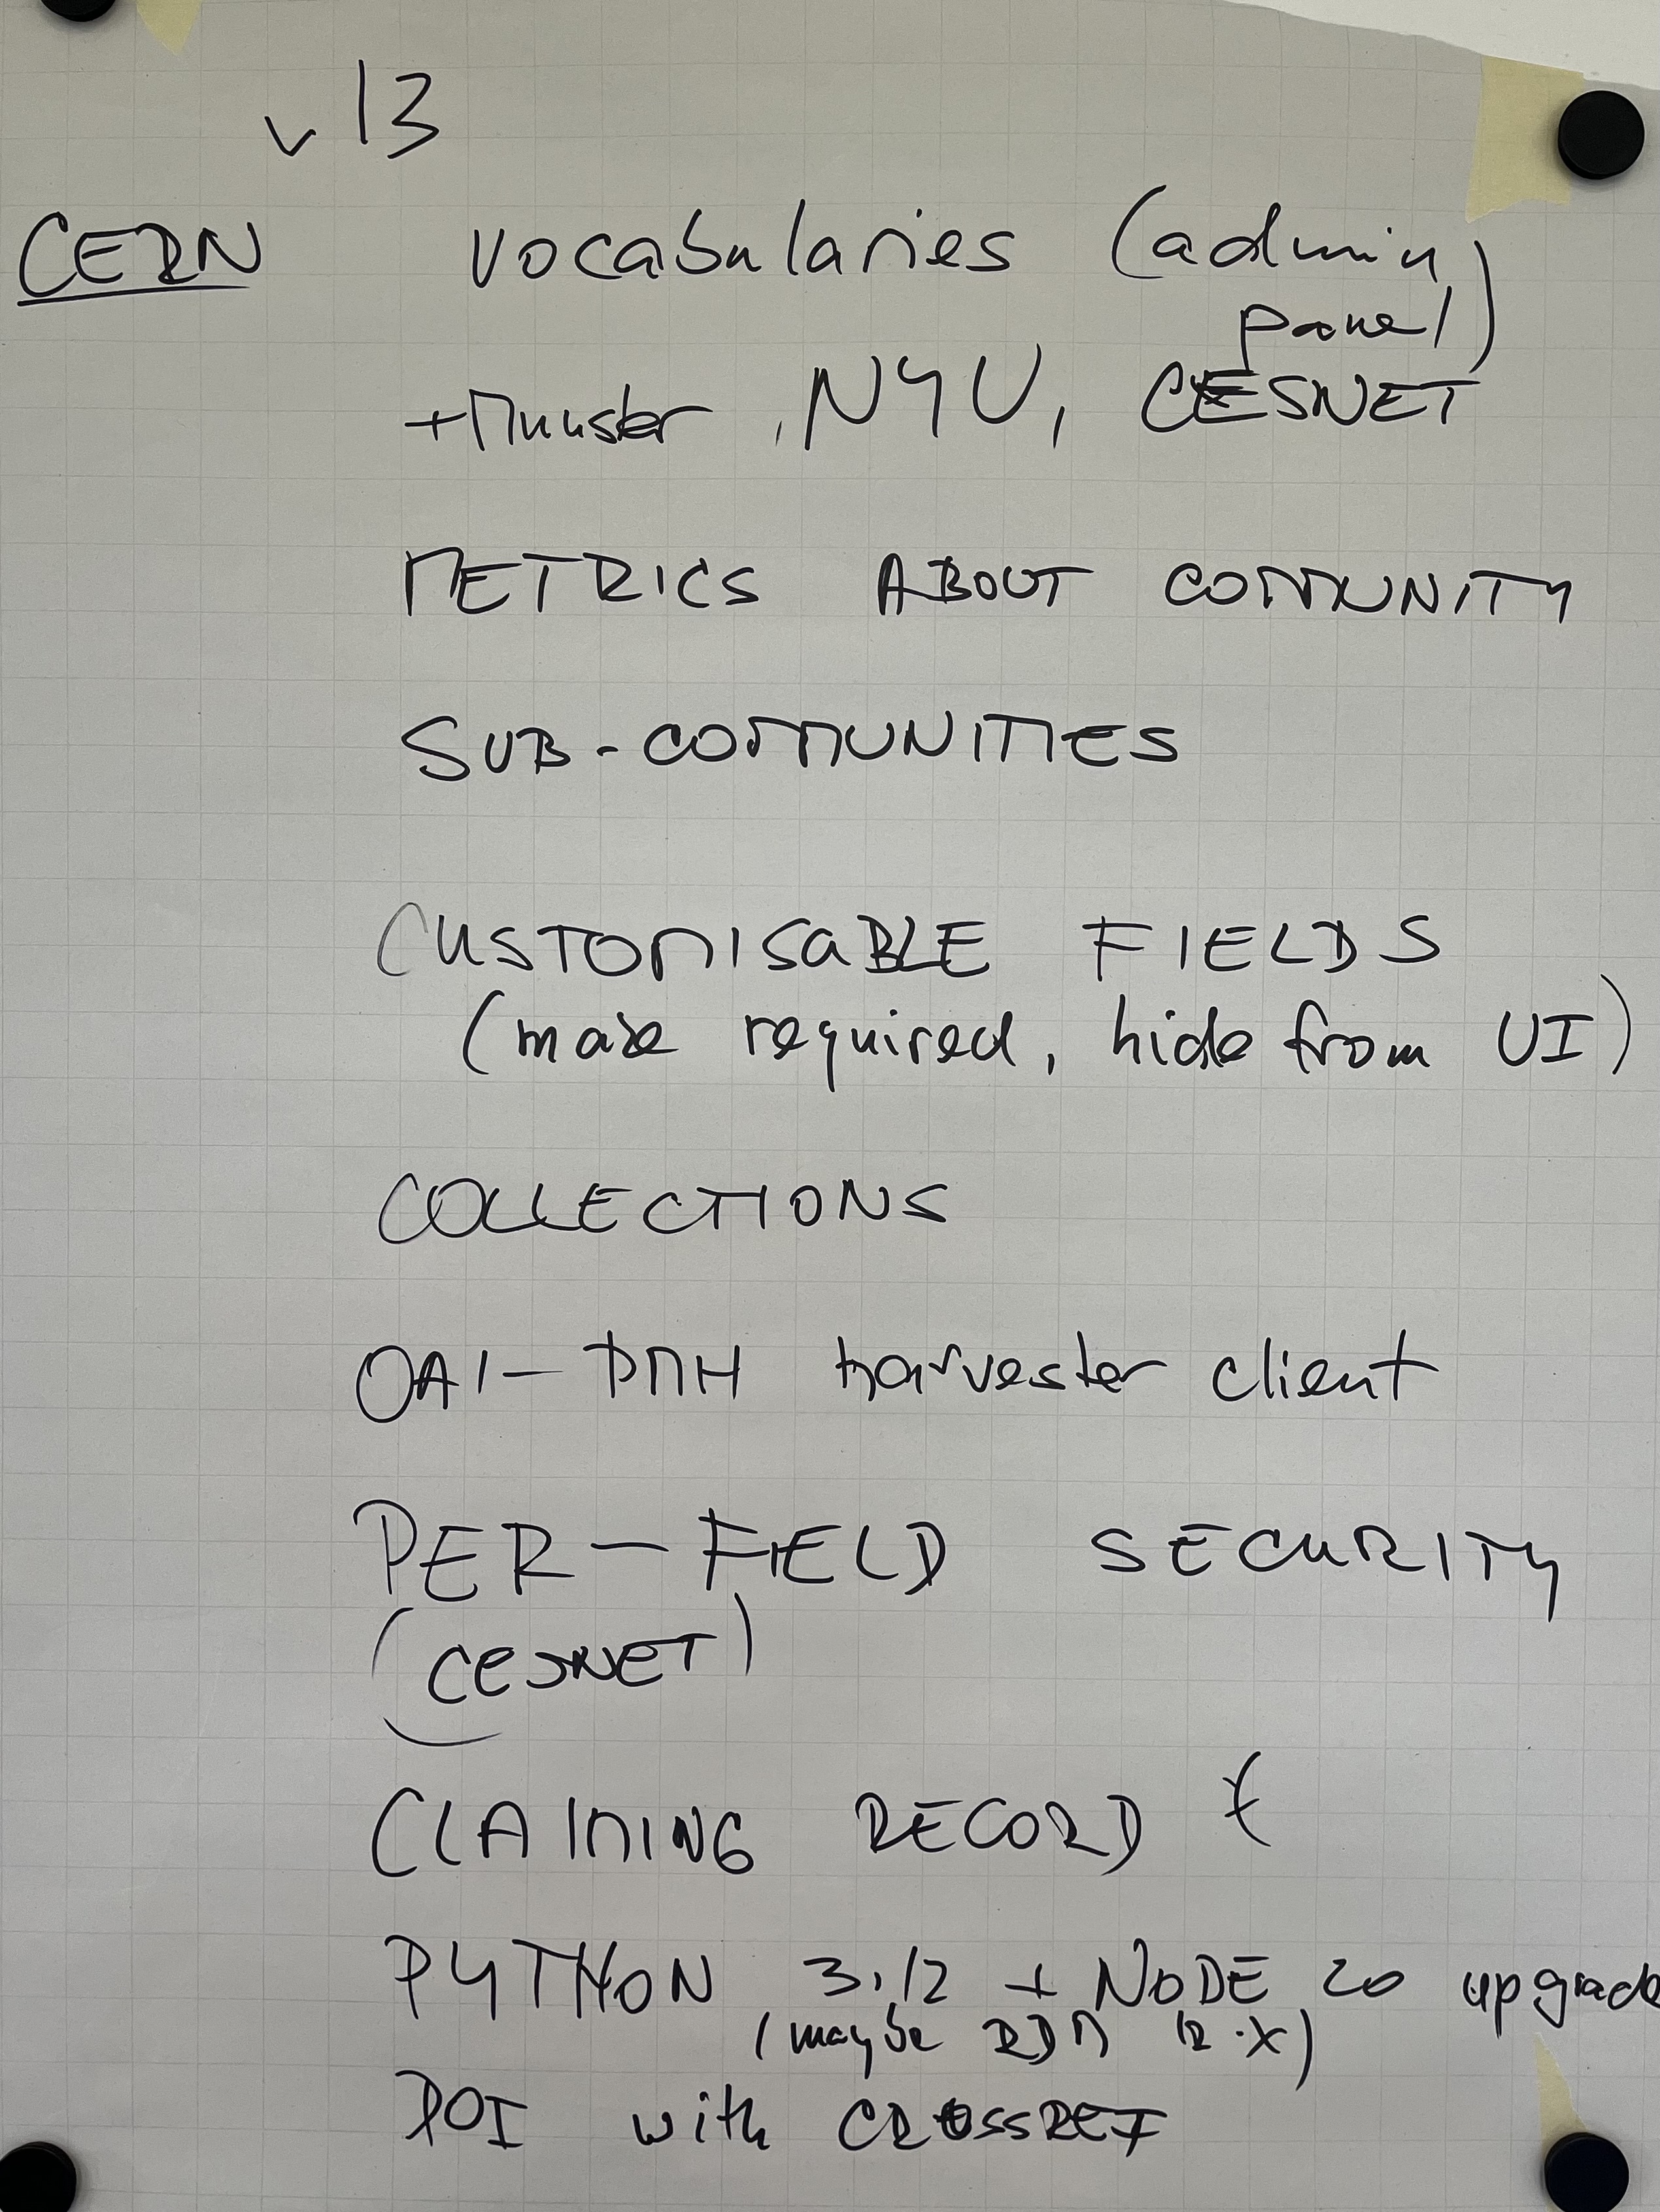 v 13
CERN vocabularies (admin
panel)
+Munster, NYU, CESNET
METRICS ABOUT COMMUNITY
SUB-COMMUNITIES
CUSTOMISABLE FIELDS
(make required, hide from UI)
COLLECTIONS
OAI-PMH harvester client
PER-FIELD SECURITY
(CESNET)
CLAIMING RECORD
PYTHON 3.12 + NODE 20 upgrade
(maybe RDM 12.x)
DOI with CROSSREF